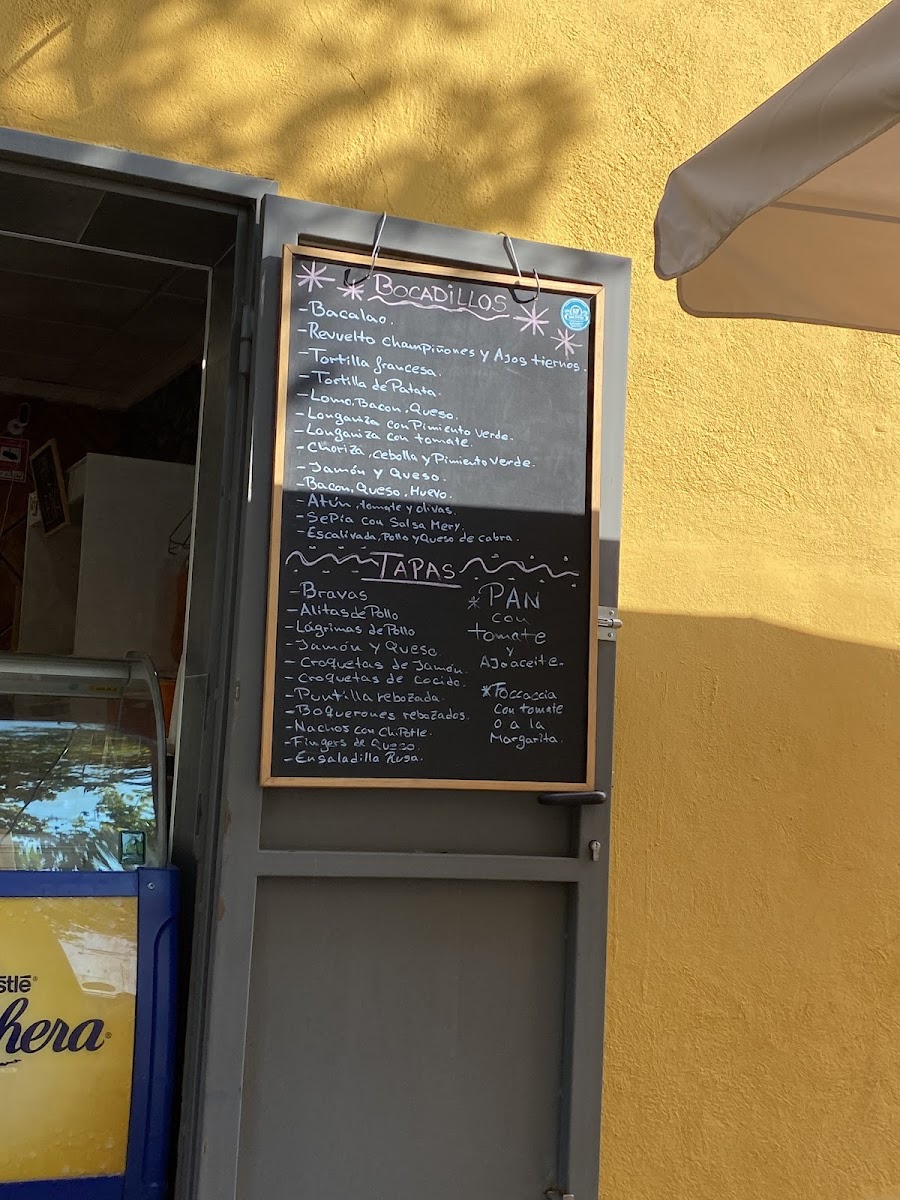 BOCADILLOS
-Bacalao.
-Revuelto champiñones y Ajos tiernos.
-Tortilla francesa.
-Tortilla de Patata.
-Lomo, Bacon, Queso.
-Longaniza con Pimiento Verde.
-Longaniza con tomate.
-Choriza, cebolla y Pimiento Verde.
-Jamón y Queso.
-Bacon, Queso, Huevo.
-Atún, tomate y olivas.
-Sepia con Salsa Mery.
-Escalivada, Pollo y Queso de cabra.
TAPAS
-Bravas
-Alitas de Pollo
-Lágrimas de Pollo
-Jamón y Queso
-Croquetas de Jamón.
-Croquetas de cocido.
-Puntilla rebozada.
-Boquerones rebozados.
-Nachos con Chipotle.
-Fingers de Queso.
-Ensaladilla Rusa.
*PAN
con
tomate
y
Ajoaceite.
*Foccaccia
con tomate
o a la
Margarita.
stlé®
hera®